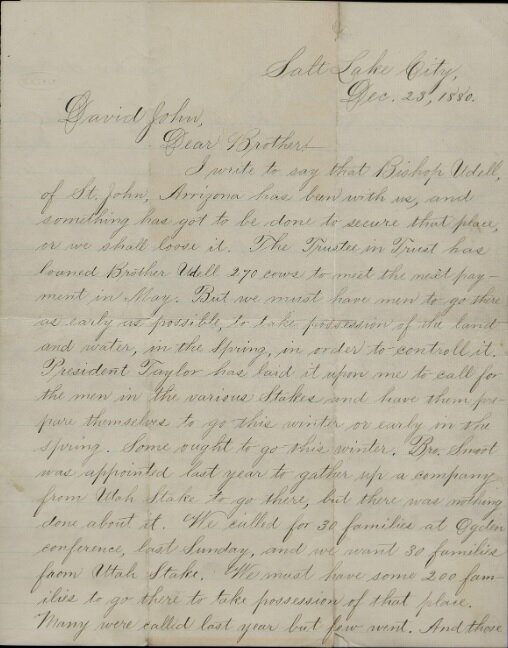 Salt Lake City,
Dec. 23, 1880.
David John,
Dear Brother
I write to say that Bishop Udell,
of St. John, Arrizona has been with us, and
something has got to be done to secure that place,
or we shall loose it. The Trustee in Trust has
loaned Brother Udell 270 cows to meet the next pay-
ment in May. But we must have men to go there
as early as possible, to take possession of the land
and water, in the spring, in order to controll it.
President Taylor has laid it upon me to call for
the men in the various Stakes and have them pre-
pare themselves to go this winter or early in the
spring. Some ought to go this winter. Bro. Smoot
was appointed last year to gather up a company
from Utah Stake to go there, but there was nothing
done about it. We called for 30 families at Ogden
conference, last Sunday, and we want 30 families
from Utah Stake. We must have some 200 fam-
ilies to go there to take possession of that place.
Many were called last year but few went. And those